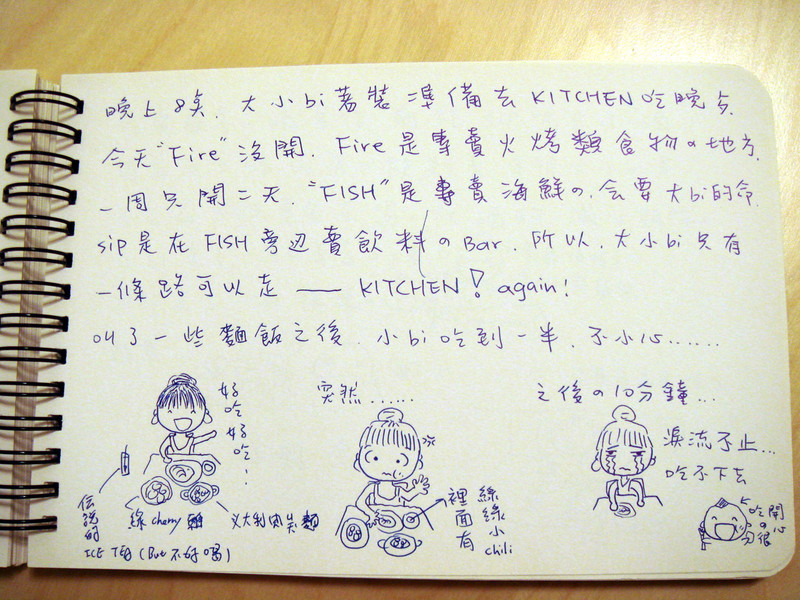 晚上8点.大小bi著裝準備去KITCHEN吃晚歺
今天"Fire"沒開.Fire是專賣火烤類食物の地方.
一周只開二天."FISH"是專賣海鮮の.会要大bi的命.
sip是在FISH旁边賣飲料のBar.所以.大小bi只有
一條路可以走 —— KITCHEN! again!
叫了一些麵飯之後.小bi吃到一半.不小心......
好吃好吃!
傳說的
ICE TEA (But 不好喝)
綠cherry
義大利肉
麵
突然......
裡面有
綠綠小chili
之後の10分鐘...
淚流不止...
吃不下去
吃の很開心